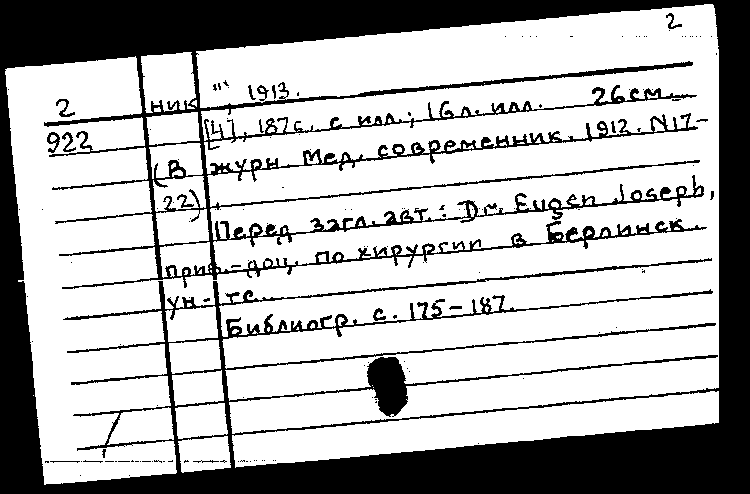 2
2 ник", 1913.
922 [4], 187с. с илл.; 16л. илл. 26см.
(В журн. Мед. современник. 1912. N17-
22).
Перед загл. авт.: Dr. Eugen Joseph,
прив.-доц. по хирургии в Берлинск.
ун-те.
Библиогр. с. 175-187.